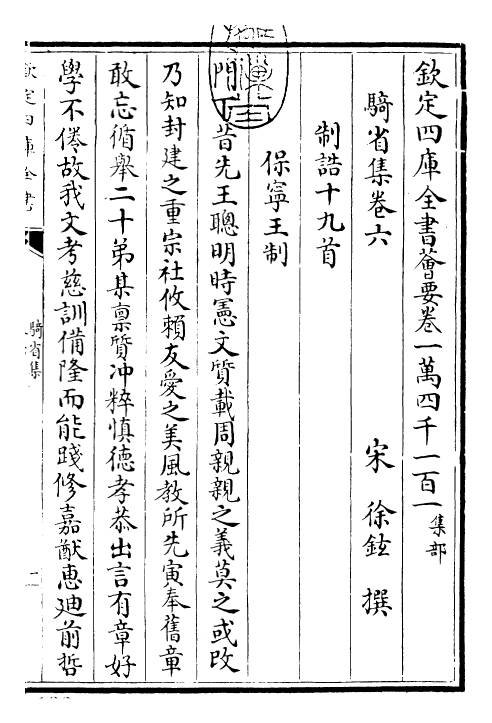 欽定四庫全書薈要卷一萬四千一百一 集部
騎省集卷六 宋 徐鉉 撰
制誥十九首
保寧王制
門下昔先王聰明時憲文質載周親親之義莫之或改
乃知封建之重宗社攸賴友愛之美風教所先寅奉舊章
敢忘循舉二十弟某稟質冲粹慎德孝恭出言有章好
學不倦故我文考慈訓備隆而能踐修嘉猷惠廸前哲
欽定四庫全書
騎省集